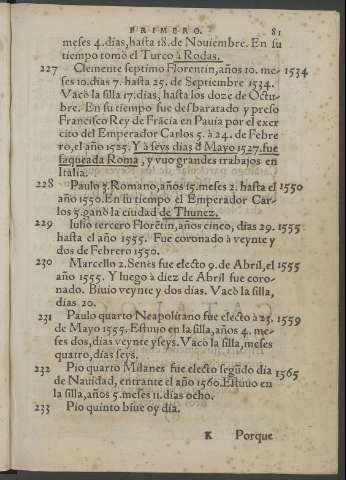 PRIMERO. 81
meses 4. dias, hasta 18. de Nouiembre. En su
tiempo tomò el Turco à Rodas.
227 Clemente septimo Florentin, años 10. me- 1534
ses 10. dias 7. hasta 25. de Septiembre 1534.
Vacò la silla 17. dias, hasta los doze de Octu-
bre. En su tiempo fue desbaratado y preso
Francisco Rey de Frãcia en Pauia por el exer
cito del Emperador Carlos 5. à 24. de Febre
ro, el año 1525. Y à seys dias ð Mayo 1527. fue
saqueada Roma, y vuo grandes trabajos en
Italia.
228 Paulo 3. Romano, años 15. meses 2. hasta el 1550
año 1550. En su tiempo el Emperador Car-
los 5. ganò la ciudad de Thunez.
229 Iulio tercero Florẽtin, años cinco, dias 29. 1555
hasta el año 1555. Fue coronado à veynte y
dos de Febrero 1550.
230 Marcello 2. Senes fue electo 9. de Abril, el 1555
año 1555. Y luego à diez de Abril fue coro-
nado. Biuio veynte y dos dias. Vacò la silla,
dias 20.
231 Paulo quarto Neapolitano fue electo à 23. 1559
de Mayo 1555. Estuuo en la silla, años 4. me-
ses dos, dias veynte y seys. Vacò la silla, meses
quatro, dias seys.
232 Pio quarto Milanes fue electo segũdo dia 1565
de Nauidad, entrante el año 1560. Estuuo en
la silla, años 5. meses 11. dias ocho.
233 Pio quinto biue oy dia.
K Porque